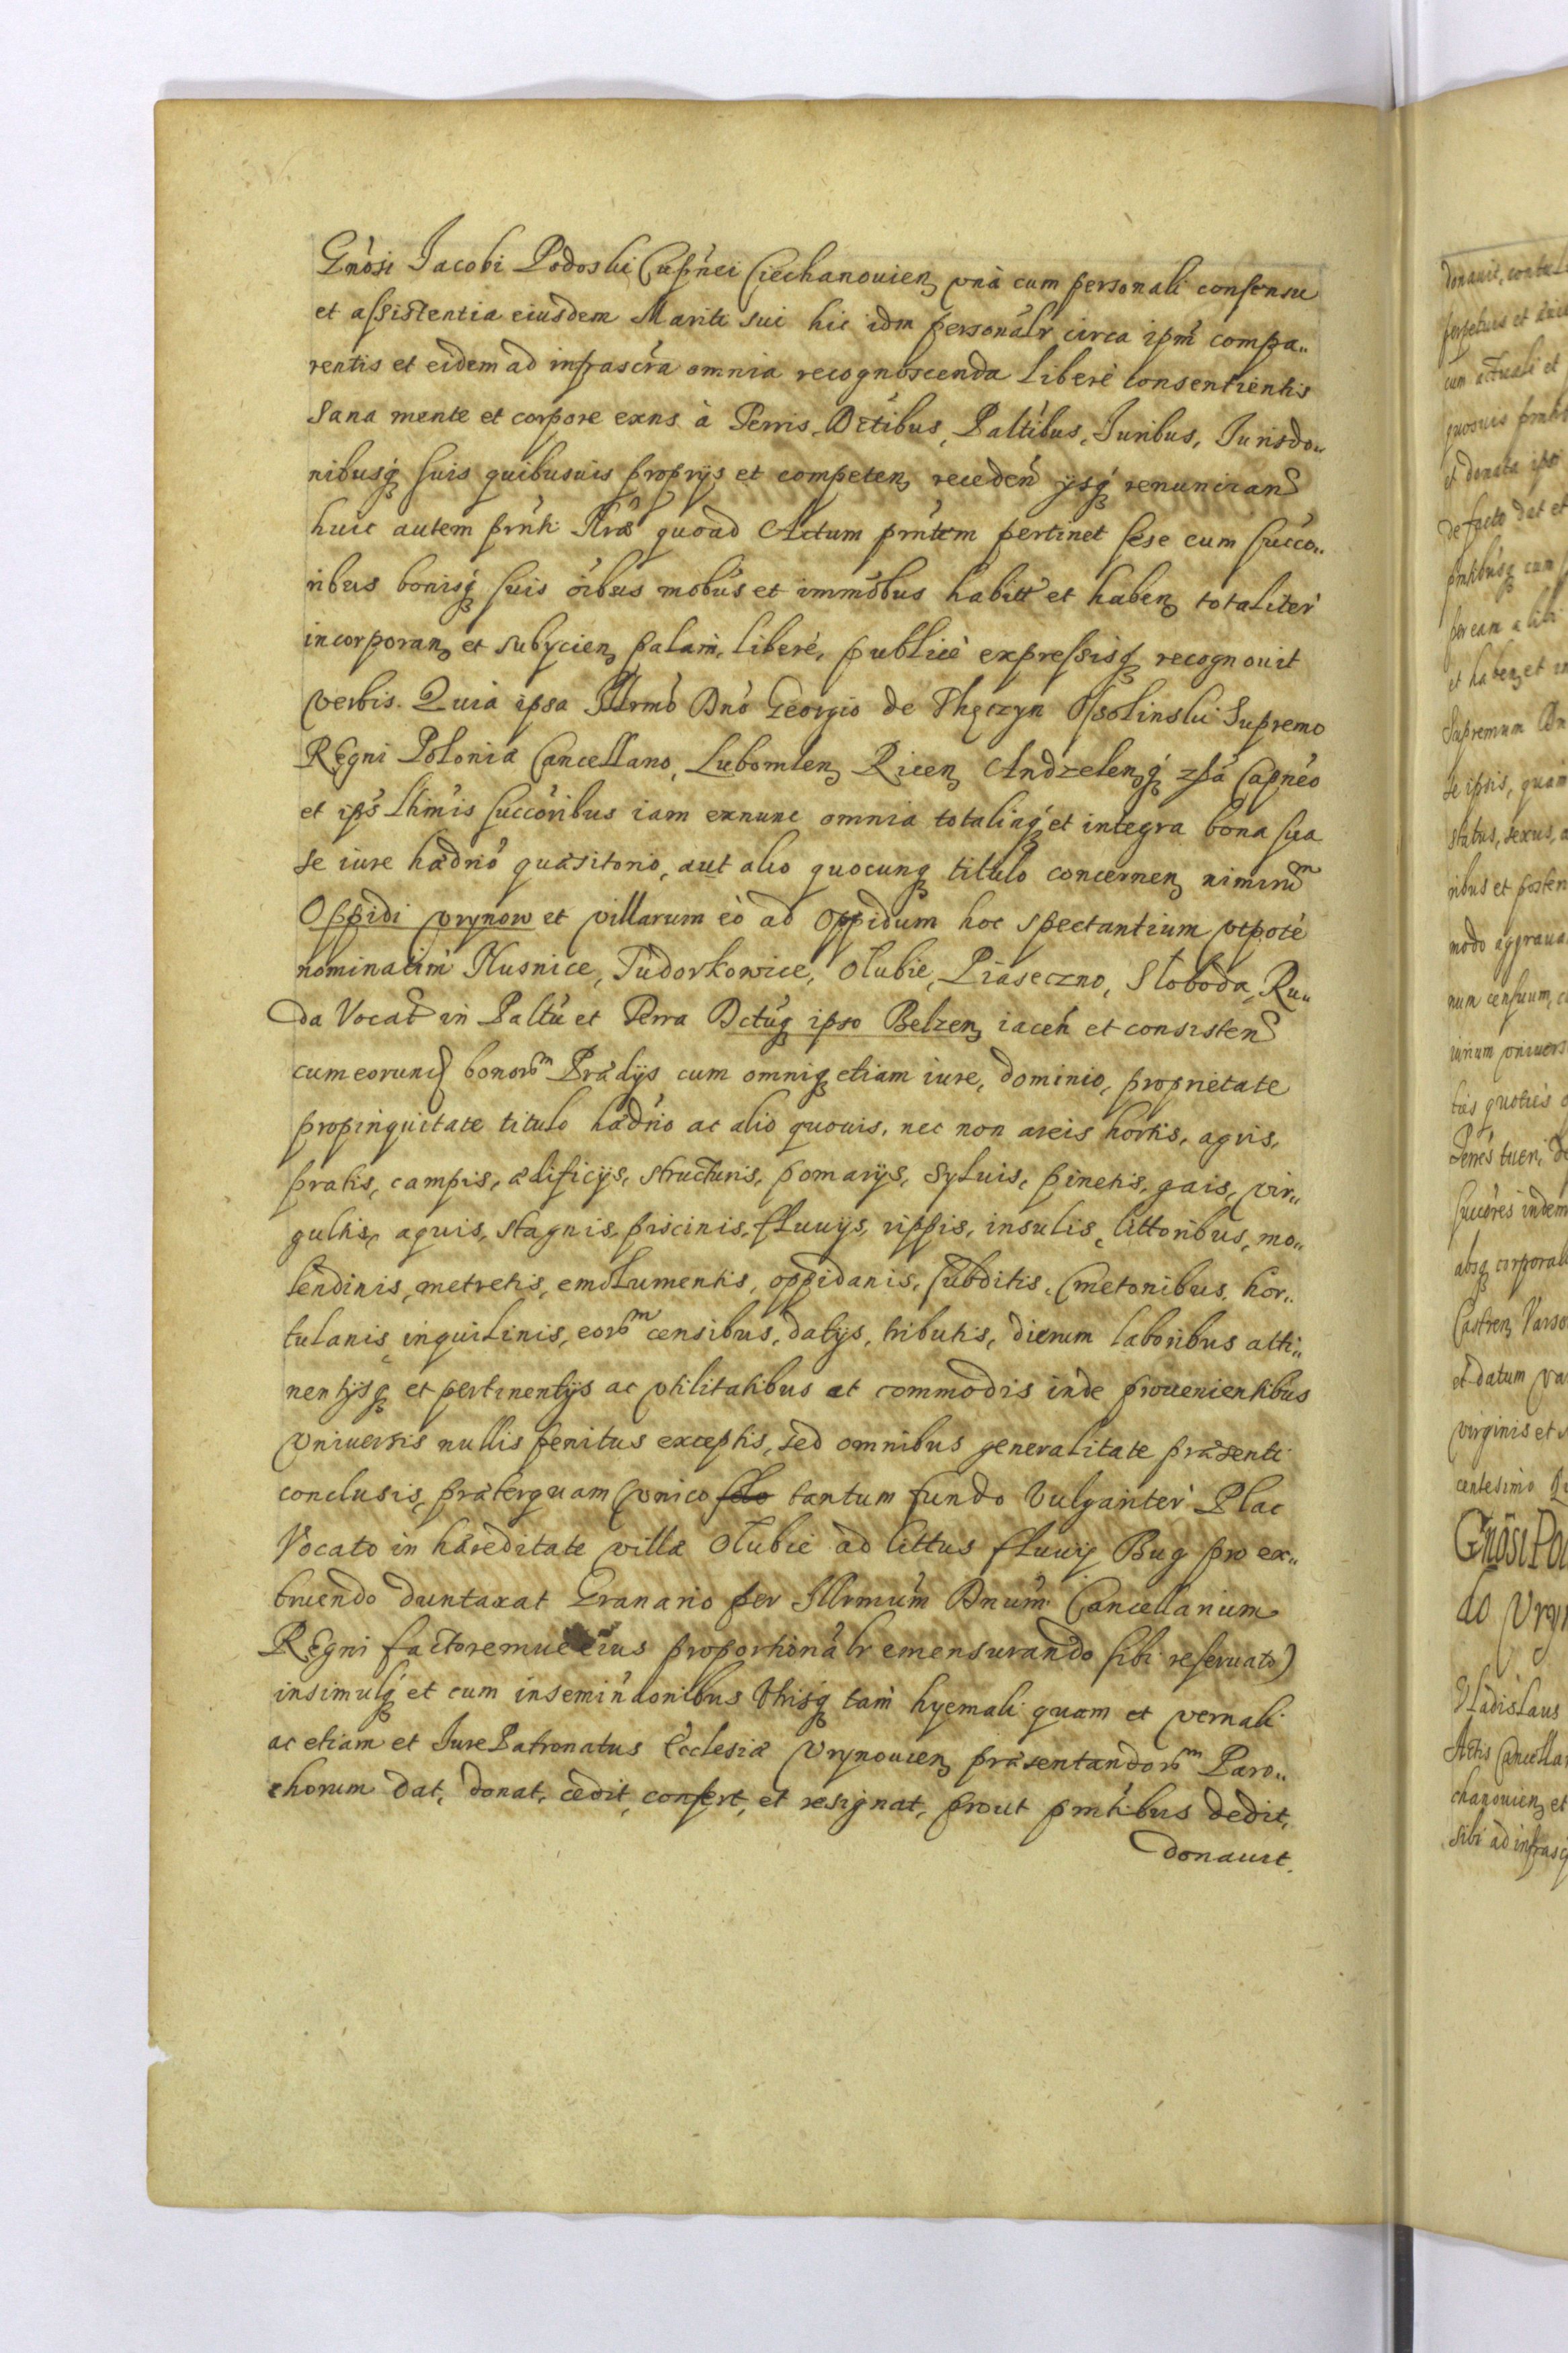 Gnosi Jacobi Podoski Capnei Ciechanouien, vna cum personali consensu
et assistentia eiusdem Mariti sui hic idm personalr circa ipm compa„
rentis et eidem ad infrascra omnia recognoscenda Liberè consentientis
Sana mente et corpore exns à Terris, Dctibus, Paltibus, Juribus, Jurisdo„
nibusq suis quibusuis proprijs et competen, receden ysq renuncian
huic autem prnti Trae quoad Actum prntem pertinet sese cum succo„
ribus bonisq suis oibus mobus et immobus habitt et haben, totaliter
incorporan, et subycien, palam, liberè, publicè expressisq recognouit
verbis. Quia ipsa Illrmo Dno Georgio de Thęczyn Ossolinski Supremo
REgni Poloniæ Cancellario, Lubomlen, Ricen, Andzelenq zpa Capneo
et ips Lhimis succoribus iam exnunc omnia totaliaq et integra bona sua
se iure hædrio quæsitorio, aut alio quocunq titulo concernen, nimirum
Oppidi vrynow et villarum eò ad oppidum hoc spectantium vtpotè
nominatim Husnice, Tudorkowice, Olubie, Piaseczno, Sloboda, Ru„
da Vocat in Paltu et Terra Dctuq ipso Belzen, iacen et consisten
cum eorund bonorm Prædijs cum omniq etiam iure, dominio, proprietate
propinquitate titulo hædrio ac alio quouis, nec non areis hortis, agris,
pratis, campis, ædificijs, structuris, pomarijs, syluis, pinetis, gais, vir„
gultis, aquis, stagnis, piscinis, fluuijs, rippis, insulis, littoribus, mo„
lendinis, metretis, emolumentis, oppidanis, subditis, Cmetonibus, hor„
tulanis, inquilinis, eorm censibus, datijs, tributis, dierum laboribus atti„
nentijsq et pertinentijs ac vtilitatibus et commodis inde prouenientibus
vniuersis nullis penitus exceptis, sed omnibus generalitate præsenti
conclusis, præterquam (vnico solo tantum fundo Vulgariter Plac
Vocato in hæreditate villæ Olubie ad littus fluuij Bug pro ex„
truendo duntaxat Granario per Illrmum Dnum Cancellarium
REgni factoremue eius proportionalr emensurando sibi reseruato)
insimulq et cum inseminaonibus Vtrisq tam hyemali quam et vernali
ac etiam et Jure Patronatus Ecclesiæ Vrynouien, præsentandorm Paro„
chorum dat, donat, cedit, confert, et resignat, prout prntibus dedit,
donauit.
donauit, contulit
perpetuis et
cum actuali et
quosuis
et donata ipsi
de facto dat et
prntibusq cum
per eam alibi
et haben, et in
Supremum Dn
se ipsis, quam
status, sexus, a
ribus et posteri
modo aggraua
num censuum, c
iurium vniuers
ties quoties
tueri, de
succores indem
absq corporali
Castren, Varso
et datum Va
virginis et
centesimo
Gnosi Po
do Vryn
Vladislaus
Actis Cancella
chanouien, et
sibi ad infrasc